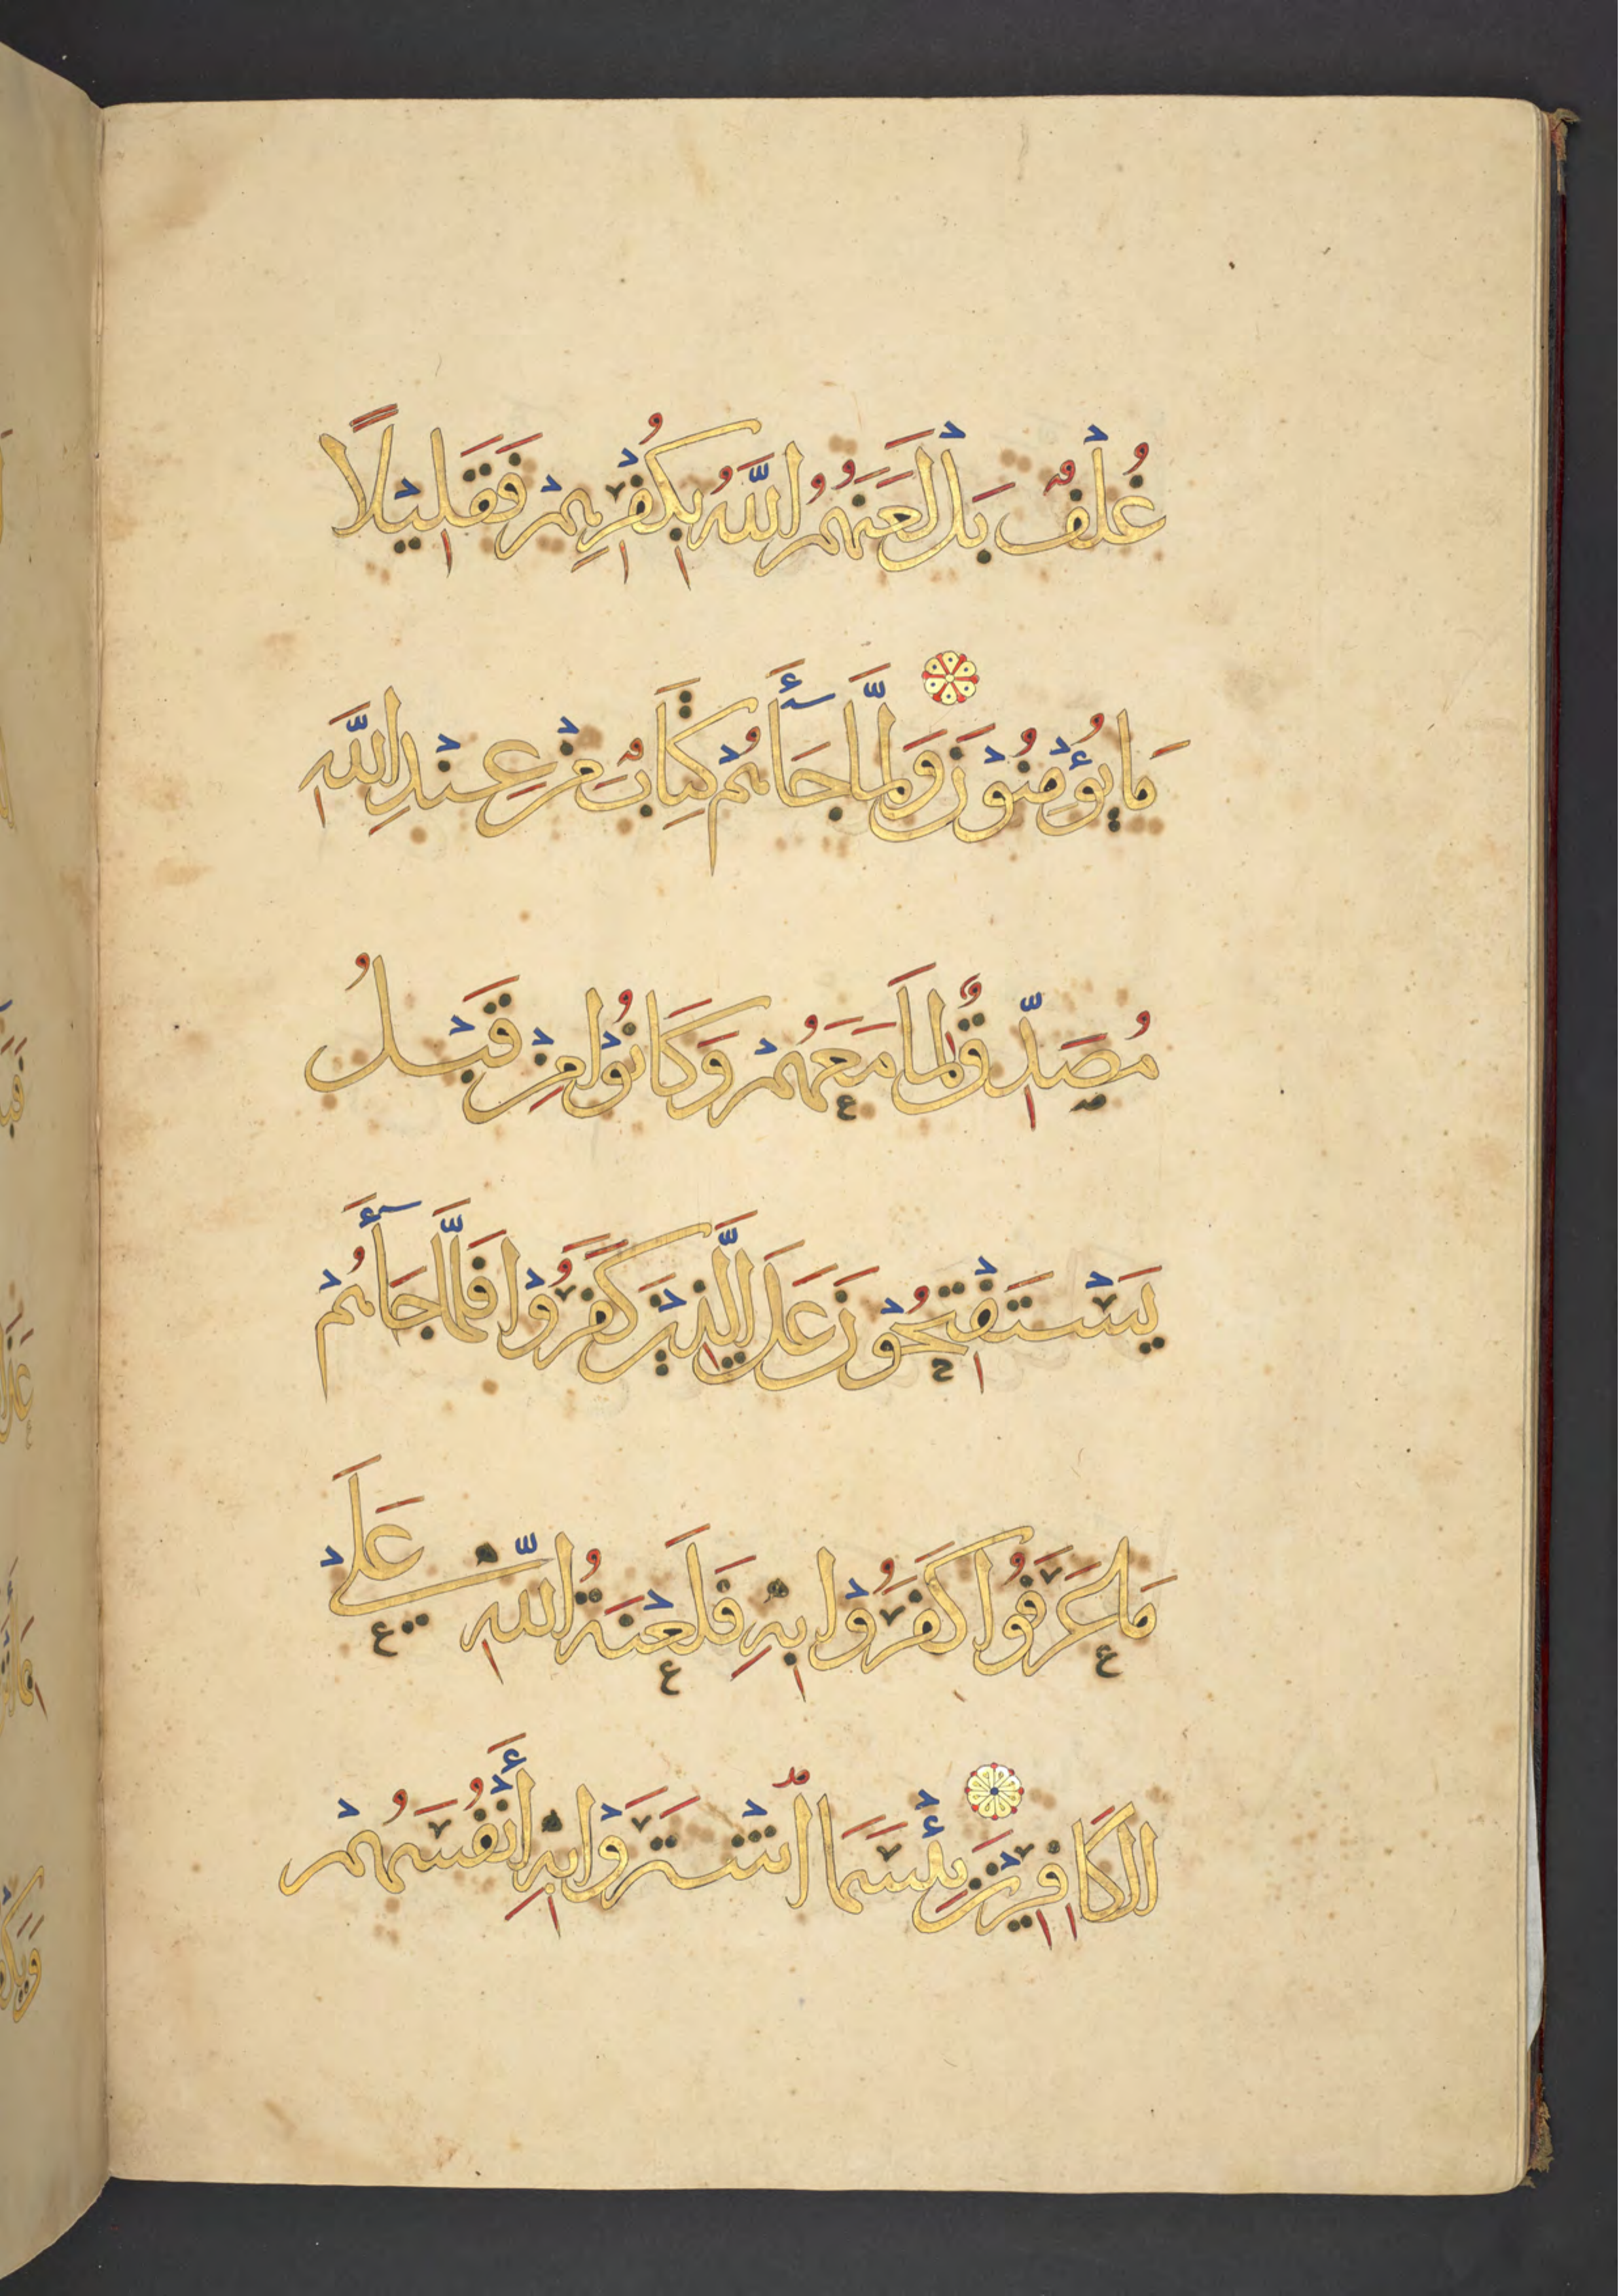 غُلْفٌ بَلْ لَعَنَهُمُ اللَّهُ بِكُفْرِهِمْ فَقَلِيْلًا
مَا يُؤْمِنُوْنَ وَلَمَّا جَآءَهُمْ كِتَابٌ مِنْ عِنْدِ اللَّهِ
مُصَدِّقٌ لِمَا مَعَهُمْ وَكَانُوْا مِنْ قَبْلُ
يَسْتَفْتِحُوْنَ عَلَى الَّذِيْنَ كَفَرُوْا فَلَمَّا جَآءَهُمْ
مَا عَرَفُوْا كَفَرُوْا بِهِ فَلَعْنَةُ اللَّهِ عَلَى
الْكَافِرِيْنَ بِئْسَمَا اشْتَرَوْا بِهِ أَنْفُسَهُمْ